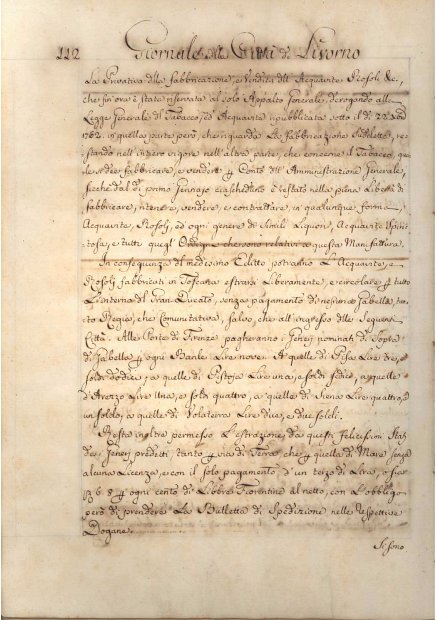 112 Giornale della Città di Livorno
La Privativa della fabbricazione, e Vendita dell' Acquavite, Rosolj &c.
che fin'ora è stata riservata al solo Appalto Generale, derogando alla
Legge Generale del Tabacco, ed Acquavite pubblicata sotto il dì 22
1762 in quella parte però, che riguarda La fabbricazione suddetta, re=
stando nell'intero vigore nell'altra parte, che concerne il Tabacco,
fabbricare, e vendere per Conto dell' Amministrazione Generale,
sicchè dal dì primo Gennajo ciascheduno è restato nella piena Libertà di
fabbricare, ritenere, vendere, e contrattare, in qualunque forma
Acquavite, Rosolj, ed ogni genere di Simili Liquori, Acquavite
e tutti quegl' Ordigni che sono relativi a questa Manifattura.
In conseguenza del medesimo Editto potranno L'Acquavite, e
Rosolj fabbricati in Toscana estrarsi Liberamente, e circolare per tutto
L'interno del Gran-Ducato, senza pagamento di nessuna Gabella,
Regia, che Comunitativa, salvo, che all'ingresso delle Seguenti
Città. Alle Porte di Firenze pagheranno i Generi nominati di Sopra
di Gabella per ogni Barile Lire nove. A quelle di Pisa Lire tre, e
soldi dodici, a quelle di Pistoja Lire una, e soldi sedici, a quelle
d'Arezzo Lire Una, e soldi quattro, a quelle di Siena Lire quattro, e
un soldo, a quelle di Volaterra Lire due, e due soldi.
Resta inoltre permesso L'estrazione da questi felicissimi Stati
dei Generi predetti, tanto per via di Terra che per quella di Mare senza
alcuna Licenza, e con il solo pagamento d'un terzo di Lira, o sia
6. 8 per ogni cento di Libbre Fiorentine al netto, con L'obbligo
però di prendere La Bulletta di Spedizione nelle Respettive
Dogane.
Si sono